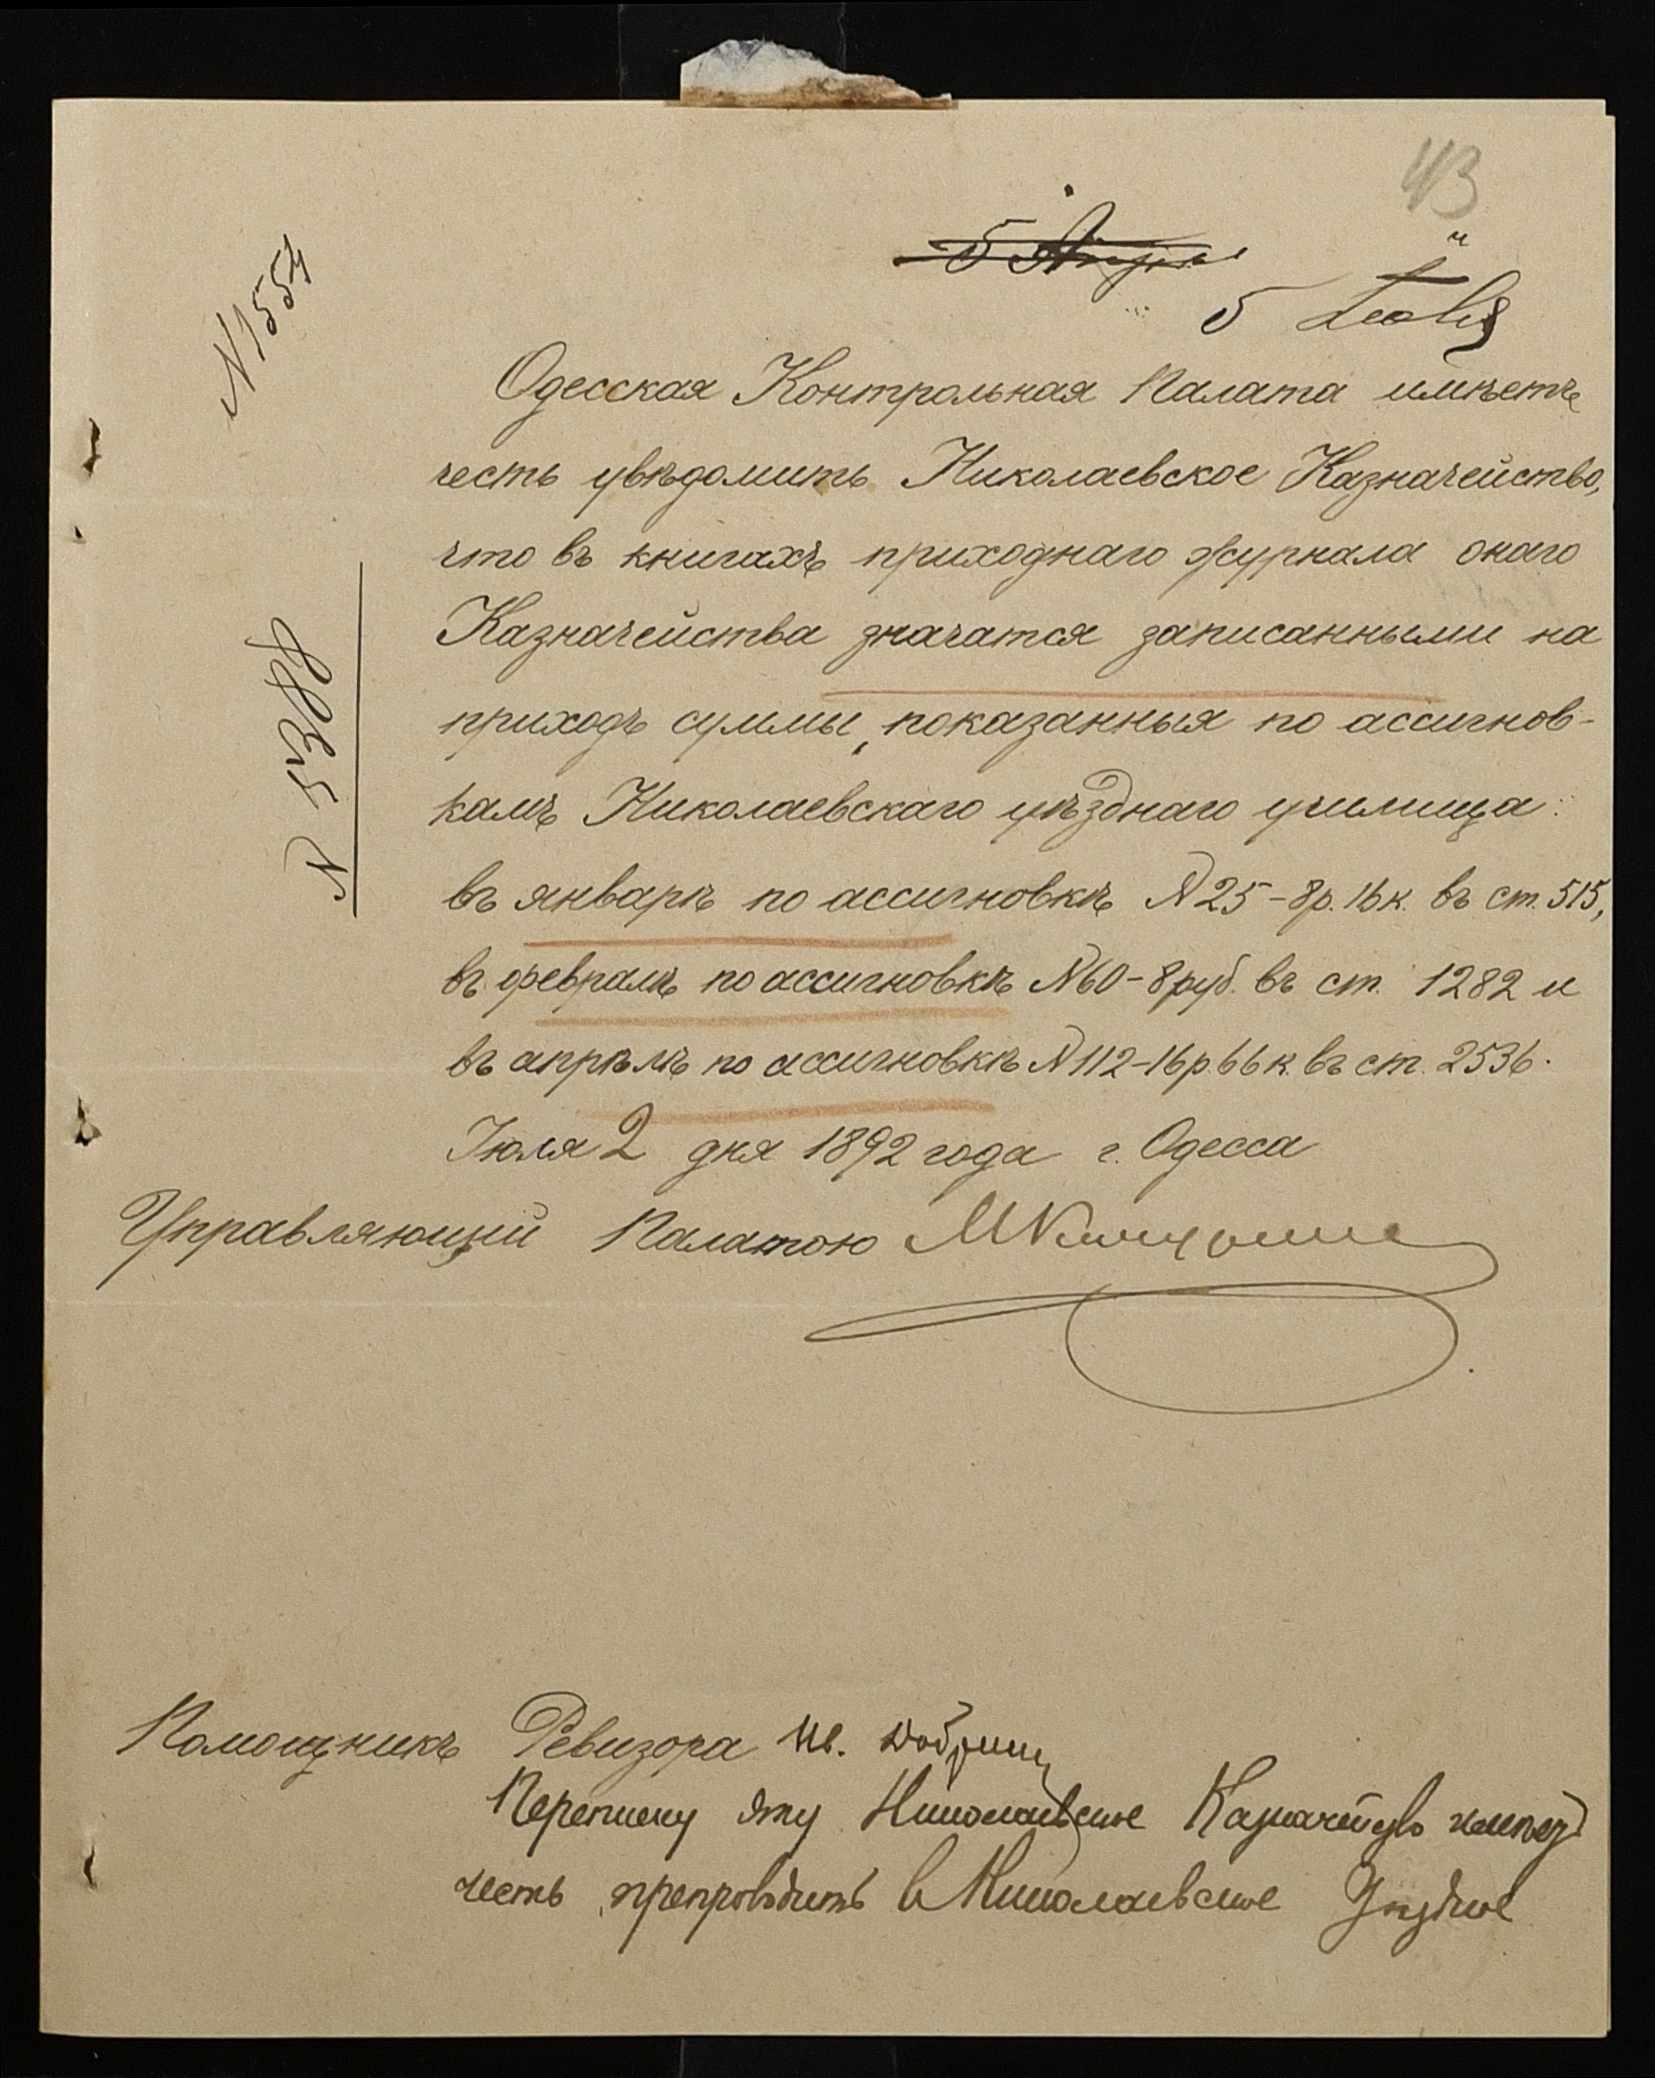 43
5 Іюля
N 1554
N 5388
Одесская Контрольная Палата имѣетъ
честь увѣдомить Николаевское Казначейство,
что въ книгахъ приходнаго журнала онаго
Казначейства значатся записанными на
приходъ суммы, показанныя по ассигнов-
камъ Николаевскаго уѣзднаго училища:
въ январѣ по ассигновкѣ N 25 - 8 р. 16 к. въ ст. 515,
въ февралѣ по ассигновкѣ N 60 - 8 руб. въ ст. 1282 и
въ апрѣлѣ по ассигновкѣ N 112 - 16 р. 66 к. въ ст. 2536.
Іюля 2 дня 1892 года г. Одесса
Управляющій Палатою
Помощникъ Ревизора Ив.
Переписку эту Николаевское Казначейство имѣетъ
честь препроводить в Николаевское Уѣздное